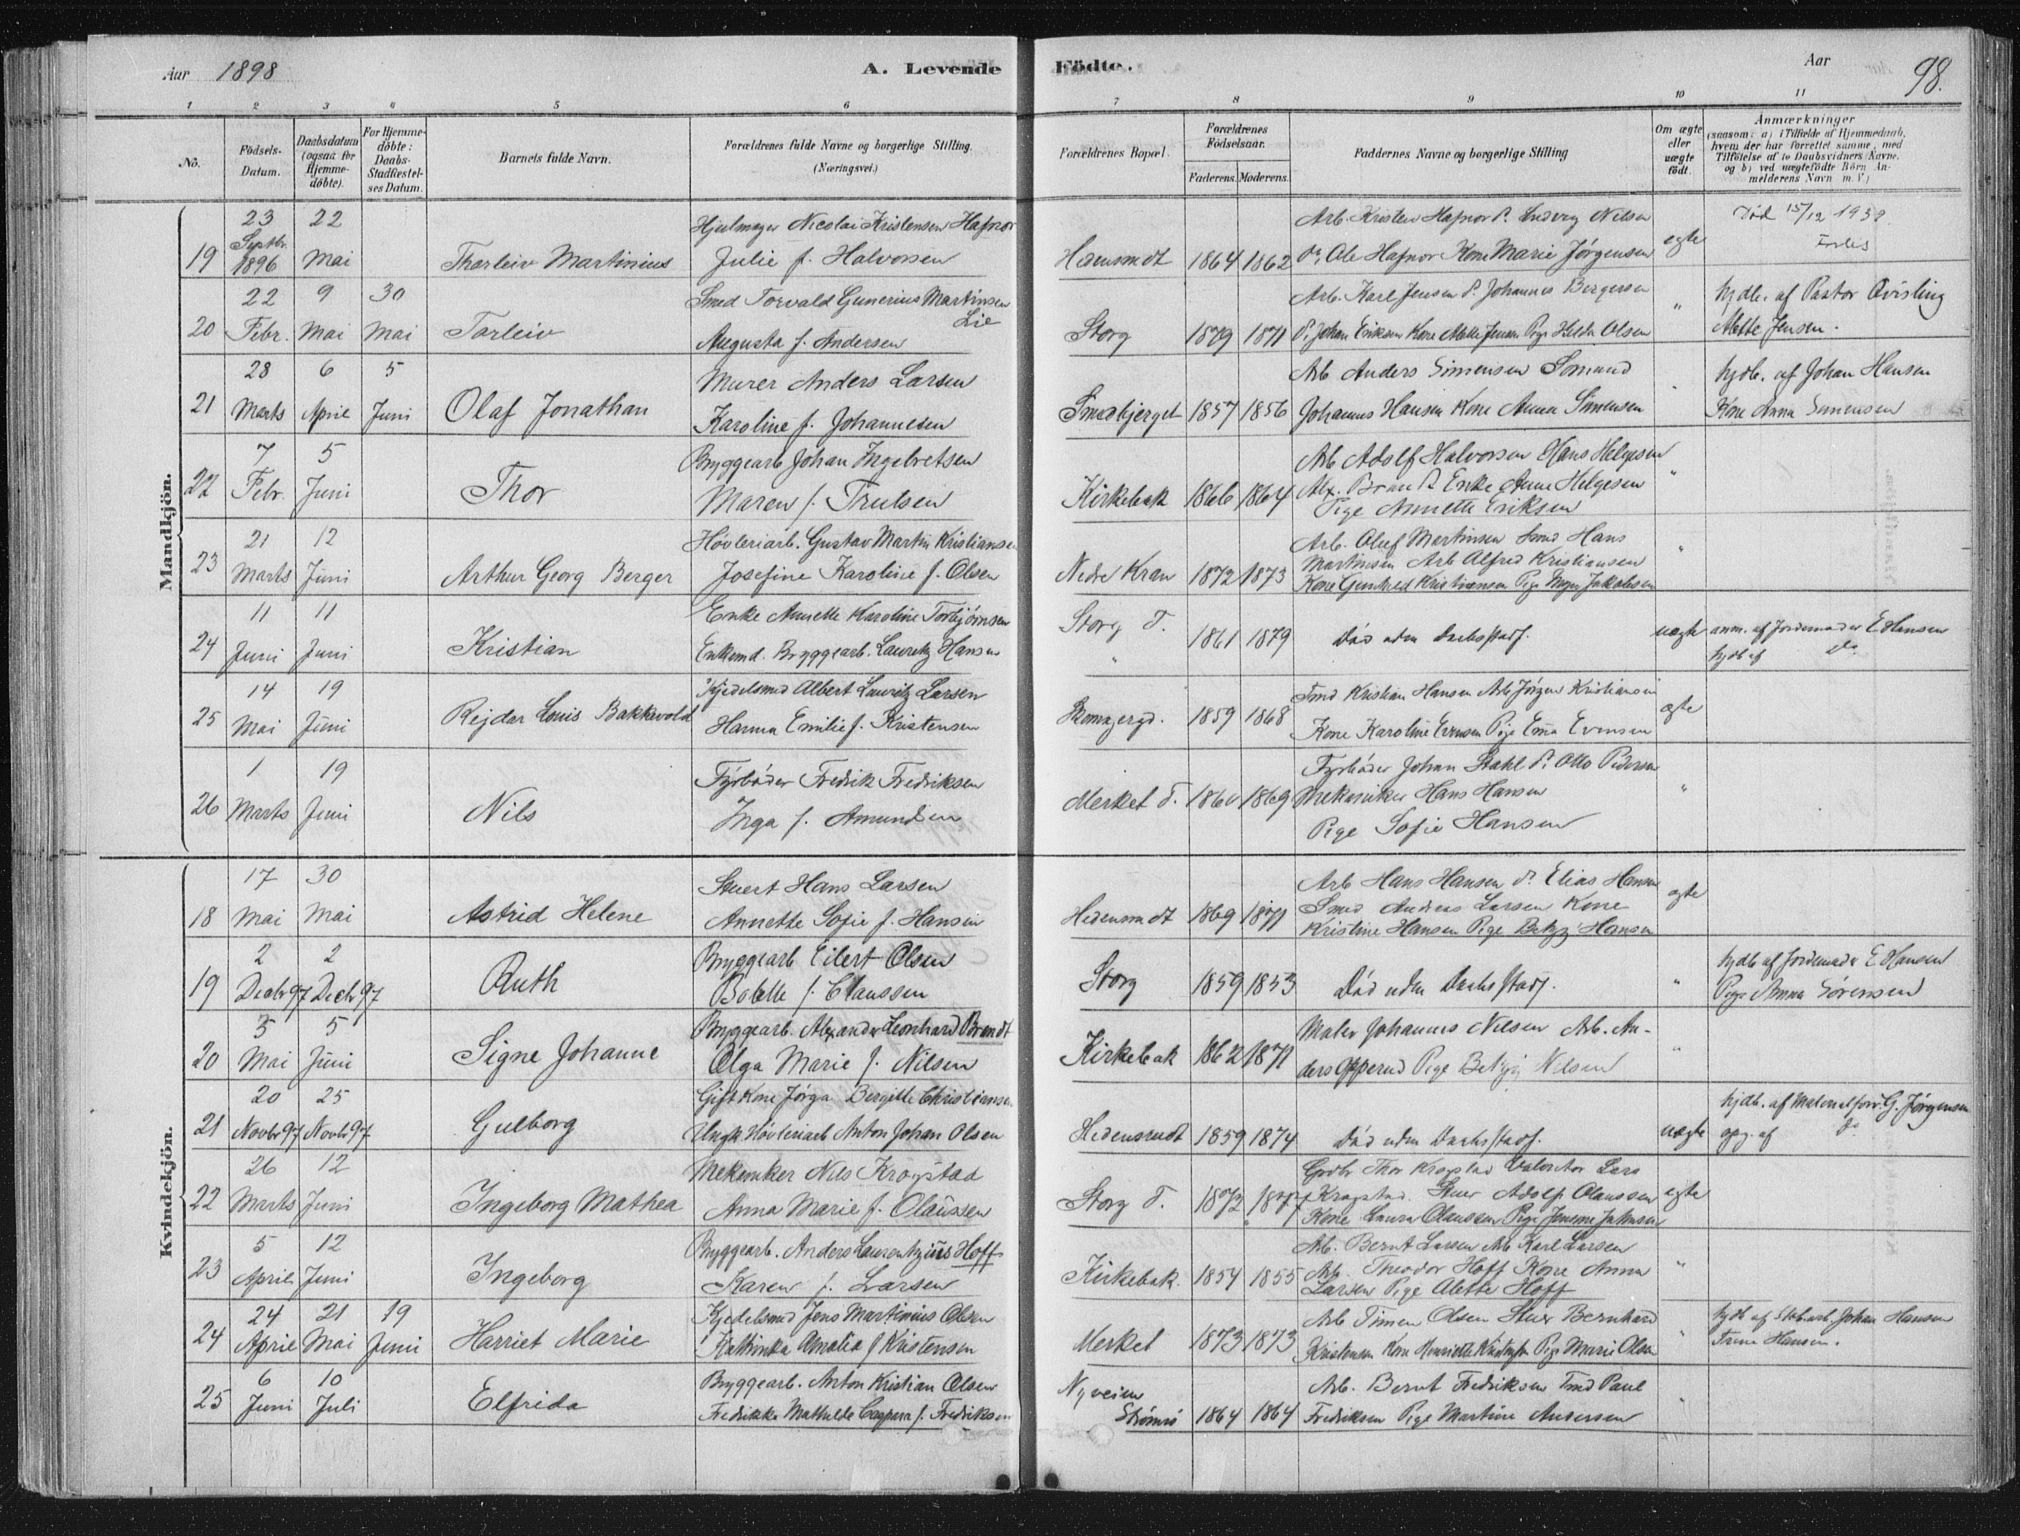 Aar 1898
A. Levende
Födte.
Aar
98.
1 2 3 4 5 6 7 8 9 10 11
No.
Födsels-
Datum.
Daabsdatum
(ogsaa for
Hjemme-
döbte).
For Hjemme-
döbte:
Daabs-
Stadfæstel-
ses Datum.
Barnets fulde Navn.
Forældrenes fulde Navne og borgerlige Stilling.
(Næringsvei.)
Forældrenes Bopæl.
Forældrenes
Födselsaar.
Faderens. Moderens.
Faddernes Navne og borgerlige Stilling
Om ægte
eller
uægte
födt.
Anmærkninger
(saasom: a) i Tilfælde af Hjemmedaab,
hvem der har forrettet samme, med
Tilföielse af to Daabsvidners Navne.
og b) ved uægtefödte Börn An-
melderens Navn m. V.)
Mandkjön.
23 22 Hjulmager Nicolai Kristensen Hafnor Arb. Kristen Hafnor Ludvig Nilsen Död 15/12 1939
Septbr.
19 1896 Mai Tharleiv Martinius Julie f. Halvorsen 1864 1862 Ole Hafnor Kone Marie Jørgensen egte
22 9 30 Smed Torvald Gunerius Martinsen Arb. Karl Jensen Johannes Bergersen hjdb. af Pastor Qvisling
Lie
20 Febr. Mai Mai Torleiv Augusta f. Andersen Storg 1879 1871 Johan Eriksen Kone Mette Jensen Pige Hilda Olsen " Mette Jensen.
28 6 5 Murer Anders Larsen Arb Anders Simensen hjdb. af Johan Hansen
21 Marts April Juni Olaf Jonathan Karoline f. Johannesen Smedbjerget 1857 1856 Johannes Hansen Kone Anna Simensen " Kone Anna Simensen
7 5 Bryggearb Johan Ingebretsen Arb Adolf Halvorsen Hans Helgesen
22 Febr. Juni Thor Maren f. Trulsen Kirkebak 1866 1864 Enke Anne Helgesen "
Pige Annette Eriksen
21 12 Høvleriarb. Gustav Martin Kristiansen Arb. Oluf Martinsen Smd Hans
23 Marts Juni Arthur Georg Berger Josefine Karoline f. Olsen Nedre Kran 1872 1873 Martinsen Arb Alfred Kristiansen "
Kone Gunhild Kristiansen Pige Jakobsen
11 11 Enke Annette Karoline Torbjörnsen Storg T.
24 Juni Juni Kristian Enkemd. Bryggearb. Lauritz Hansen " 1861 1879 Död uden Daabsstadf. uægte anm. af Jordemoder E Hansen
hjdb af do
14 19 Kjedelsmed Albert Lauritz Larsen Smd Kristian Hansen Arb Jörgen Kristiansen
25 Mai Juni Rejdar Louis Bakkevold Hanna Emilie f. Kristensen 1859 1868 Kone Karoline Evensen Pige Ema Evensen ægte
1 19 Fyrböder Fredrik Fredriksen Fyrböder Johan Stahl Otto Pedersen
26 Marts Juni Nils Inga f. Amundsen Merket T. 1869 Mekaniker Hans Hansen "
Pige Sofie Hansen
Kvindekjön.
17 30 Stuert Hans Larsen Arb Hans Hansen Elias Hansen
18 Mai Mai Astrid Helene Annette Sofie f. Hansen 1869 1871 Smed Andreas Larsen Kone ægte
Kristine Hansen Pige Betzy Hansen
2 2 Bryggearb Eilert Olsen hjdb af Jordemoder E Hansen
19 Decbr 97 Decbr 97 Ruth Bolette f. Claussen Storg 1859 1853 Död uden Daabsstadf. " Pige Anna Sörensen
3 5 Bryggearb. Alexander Leonhard Brandt Maler Johannes Nilsen Arb. An-
20 Mai Juni Signe Johanne Olga Marie f. Nilsen Kirkebak 1862 1871 ders Opperud Pige Betzy Nilsen "
20 25 Gift Kone Jörga Bergitte Christiansen hjdb. af G. Jörgensen
21 Novbr 97 Novbr 97 Gulborg Ungk Høvleriarb Anton Johan Olsen 1859 1874 Död uden Daabsstadf. uægte opg. af do
26 12 Mekaniker Nils Krogstad Grdbr Thor Krogstad Lars
22 Marts Juni Ingeborg Mathea Anna Marie f. Olaussen Storg T. 1872 1877 Krogstad. Stuer Adolf Olaussen egte
Kone Laura Olaussen Pige Jakobsen
5 12 Bryggearb. Anders Laurentzius Hoff Arb. Bernt Larsen Arb Karl Larsen
23 April Juni Ingeborg Karen f. Larsen Kirkebak. 1854 1855 Arb. Theodor Hoff Kone Anna "
Larsen Pige Alette Hoff
24 21 19 Kjedelsmed Jens Martinius Olsen Arb Simen Olsen Stuer Bernhard hjdb af Johan Hansen
24 April Mai Juni Harriet Marie Kathinka Amalia f Kristensen Merket 1873 1873 Kristensen Kone Henriette Pige Marie Olsen " Hansen.
6 10 Bryggearb. Anton Kristian Olsen Nyveien Arb. Bernt Fredriksen Smd Paul
25 Juni Juli Elfrida Fredrikke Mathilde Caspara f. Fredriksen Strömsö 1864 1864 Fredriksen Pige Martine Andersen "